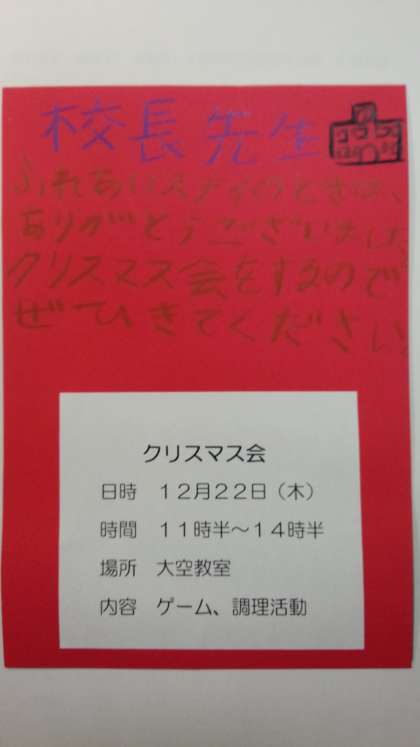 校長先生
ふれあいスタディのときは、
ありがとうございました。
クリスマス会をするので
ぜひきてください
クリスマス会
日時　１２月２２日（木）
時間　１１時半～１４時半
場所　大空教室
内容　ゲーム、調理活動